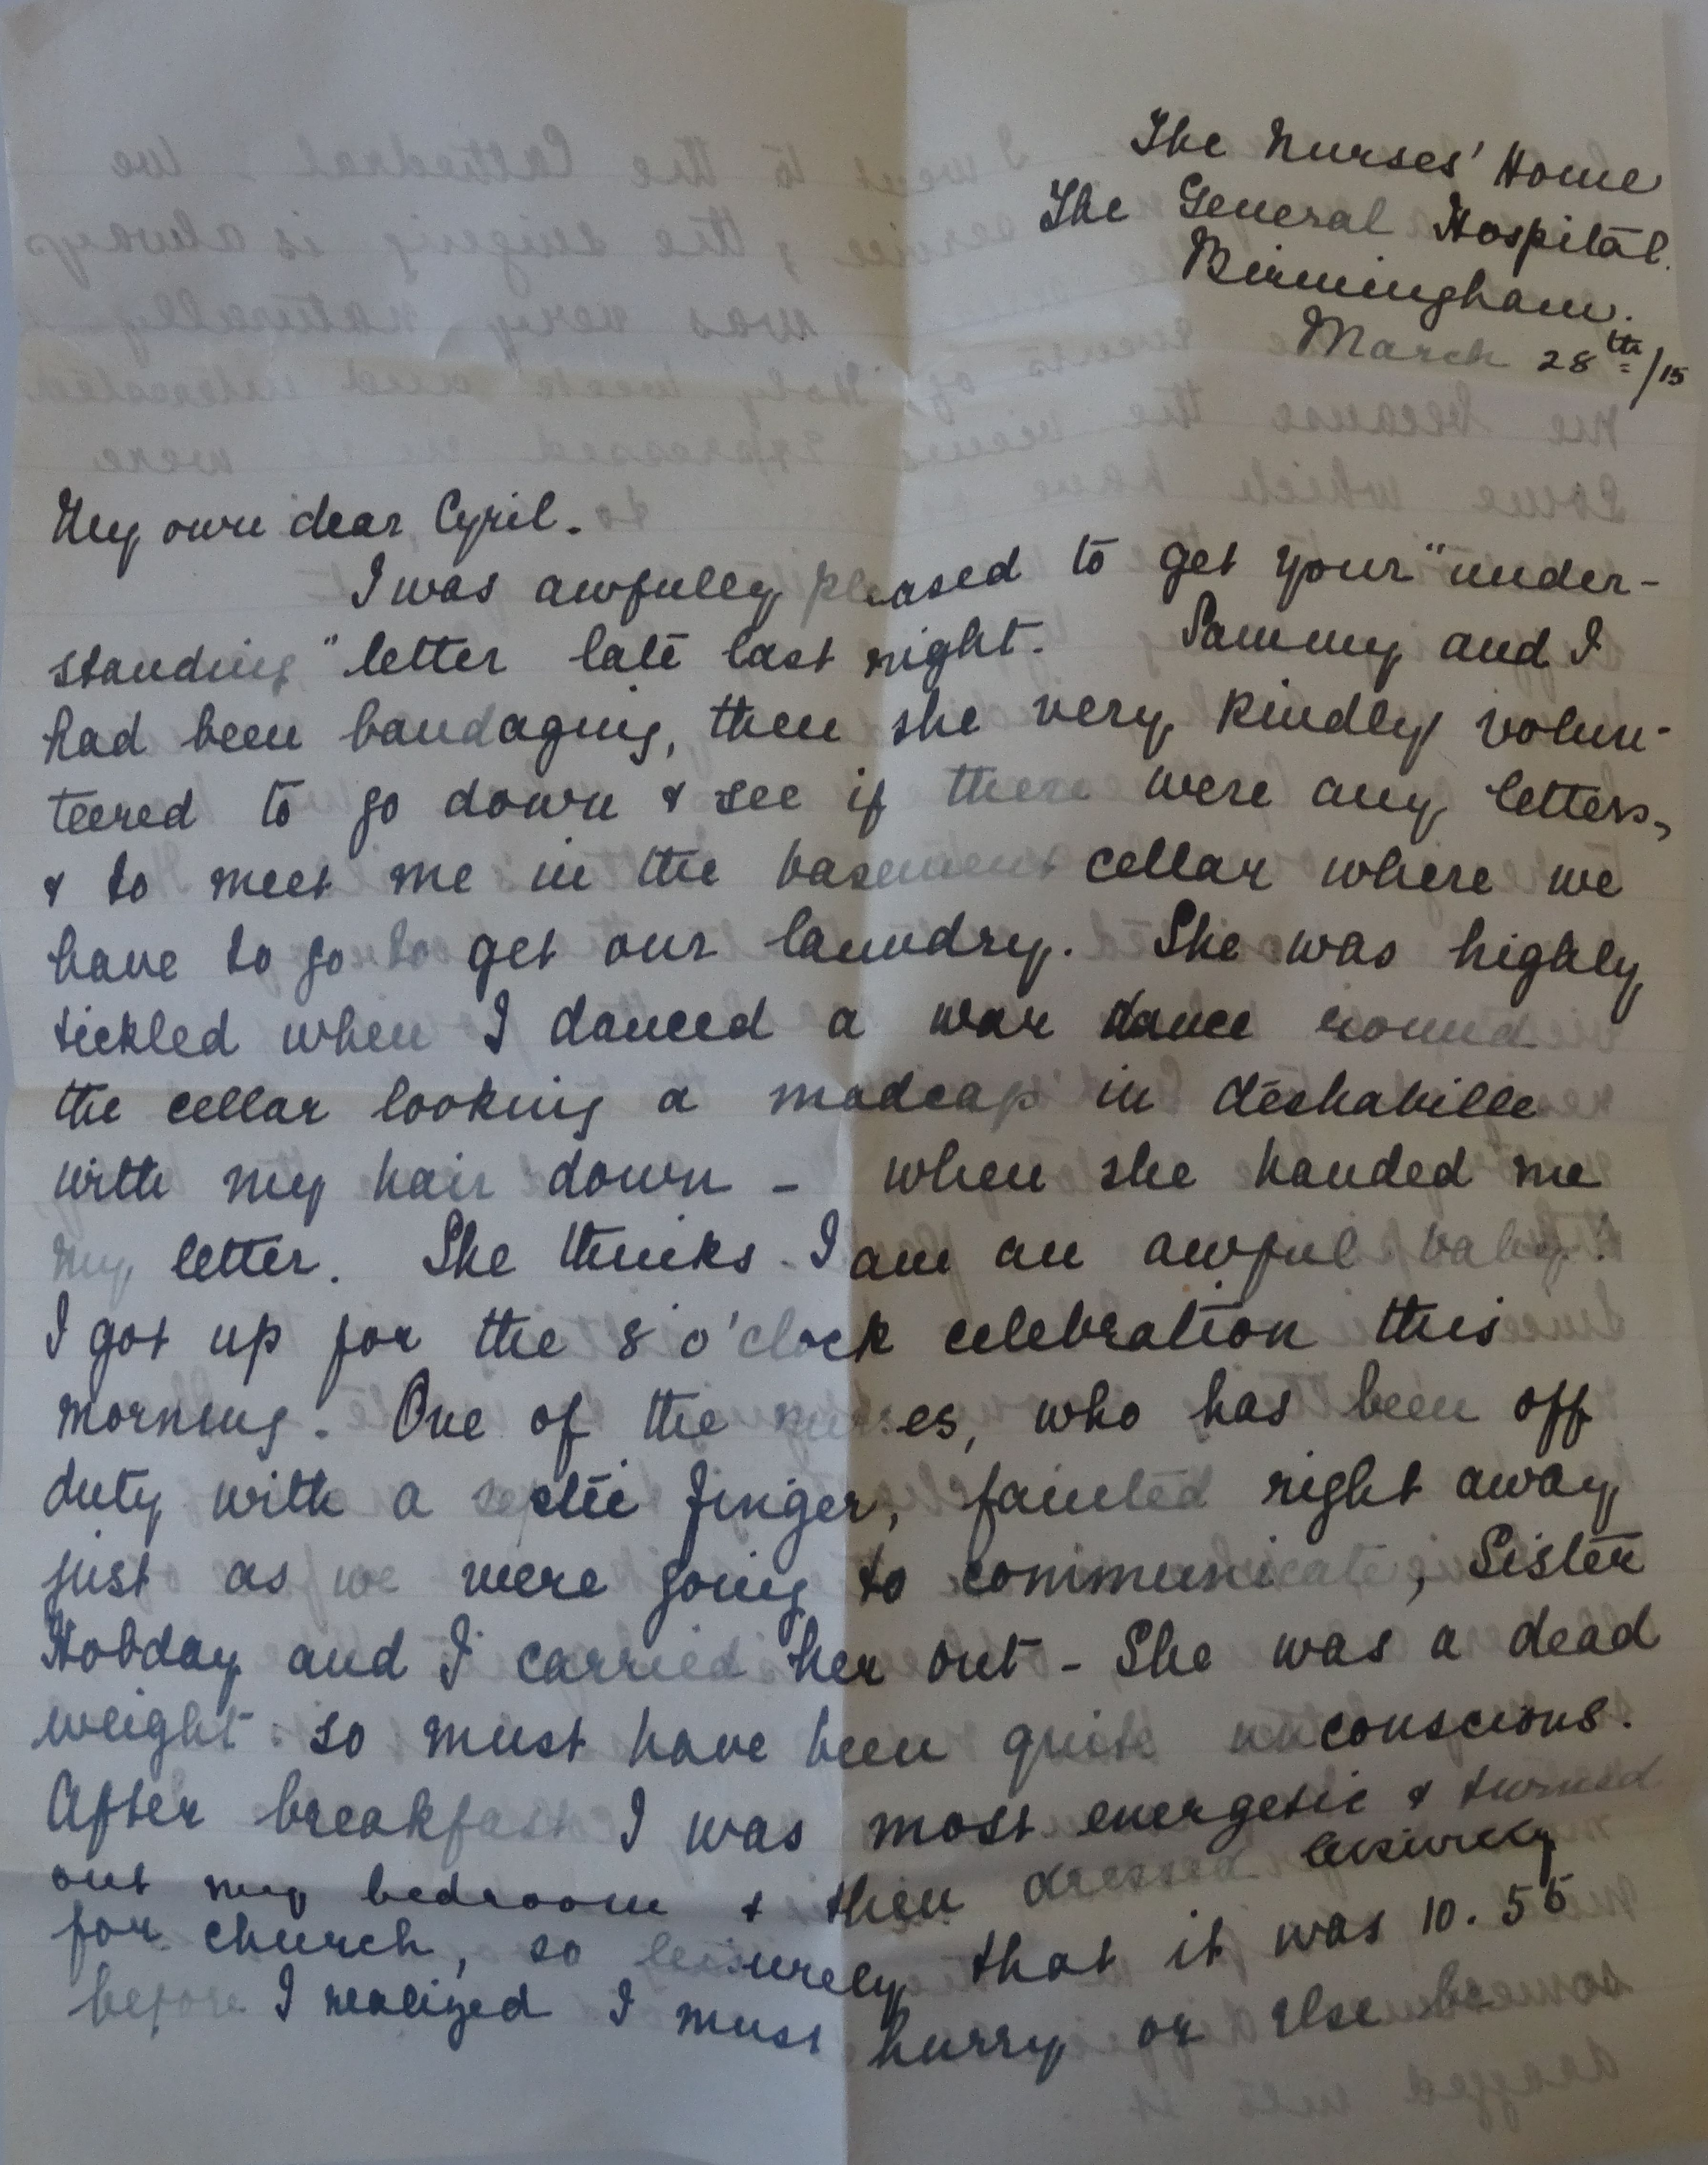 The Nurses' Home
The General Hospital.
Birmingham.
March 28th/15
My own dear Cyril.
I was awfully pleased to get your "under-
standing" letter late last night. Sammy and I
had been bandaging, then she very kindly volun-
teered to go down & see if there were any letters,
& to meet me in the basement cellar where we
have to go to get our laundry. She was highly
tickled when I danced a war dance round
the cellar looking a madcap in déshabille
with my hair down - when she handed me
my letter. She thinks I am an awful baby!
I got up for the 8 o'clock celebration this
morning. One of the nurses, who has been off
duty with a septic finger, fainted right away
just as we were going to communicate, Sister
Hobday and I carried her out - She was a dead
weight so must have been quite unconscious.
After breakfast I was most energetic & turned
out my bedroom & then dressed leisurely
for church, so leisurely that it was 10.55
before I realized I must hurry or else be